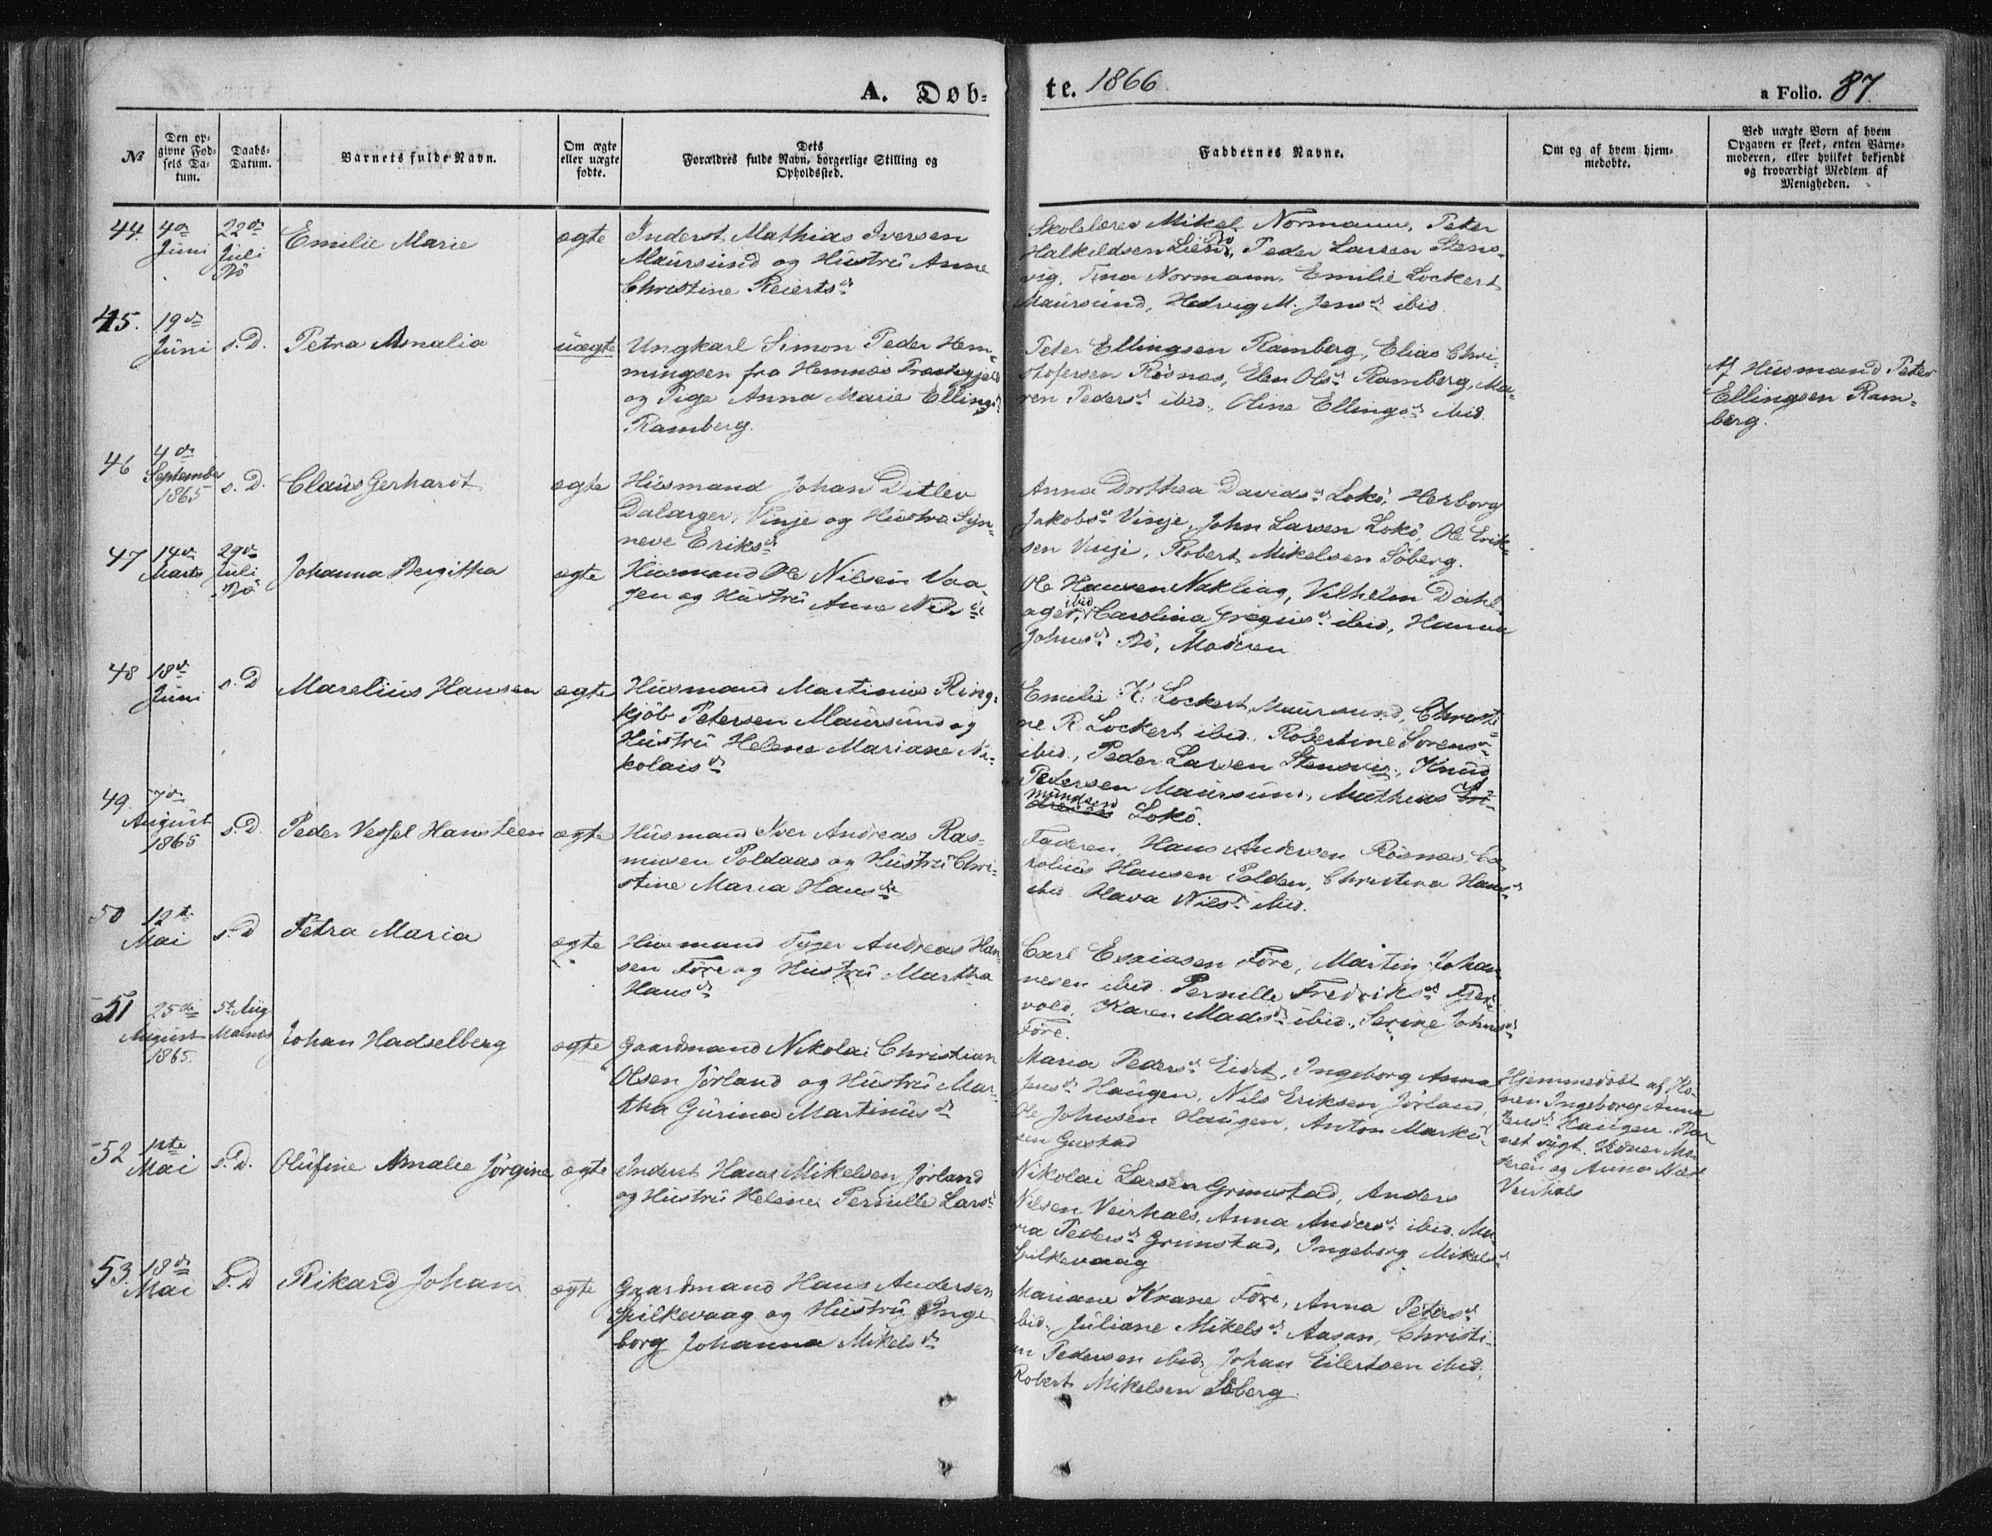 A. Døb-
te. 1866.
a Folio. 87.
№
Den op-
givne Fød-
sels Da-
tum.
Daabs-
Datum.
Barnets fulde Navn.
Om ægte
eller uægte
fødte.
Dets
Forældres fulde Navn, borgerlige Stilling og
Opholdssted.
Faddernes Navne.
Om og af hvem hjem-
medøbte.
Ved uægte Børn af hvem
Opgaven er skeet, enten Barne-
moderen, eller hvilket bekjendt
og troværdigt Medlem af
Menigheden.
44.
4de
Juni
22de
Juli
Bö
Emilie Marie
ægte
Inderst Mathias Iversen
Maursund og Hustru Anne
Christine Reierts d.
Skolelærer Mikel Normann, Peter
Halkildsen Lien Bö, Peder Larsen Stens-
vig, Tina Normann, Emilie Lockert
Maursund, Hedvig M. Jens d. ibid.
45.
19de
Juni
s. D.
Petra Amalia
uægte
Ungkarl Simon Peder Hem-
mingsen fra Hemnæs Præstegjeld
og Pige Anna Marie Ellings d.
Ramberg.
Peter Ellingsen Ramberg, Elias Chri-
stofersen Rösnæs, Elen Ols d. Ramberg, Ma-
ren Peders d. ibid., Oline Ellings d. ibid.
Af Husmand Peter
Ellingsen Ram-
berg.
46
4de
September
1865
s. D.
Claus Gerhardt
ægte
Husmand Johan Ditlev
Dalager, Vinje og Hustru Syn-
neve Eriks d.
Anna Dorthea Davids d. Lokö, Herborg
Jakobs d. Vinje, John Larsen Lokö, Ole Erik-
sen Vinje, Robert Mikelsen Söberg.
47
14de
Marts
29de
Juli
Bö
Johanna Bergitha
ægte
Husmand Ole Nilsen Vaa-
gen og Hustru Anne Nils d.
Ole Hansen Nakling, Vilhelm Dahl-
ager, ibid Carolina Gregius d. ibid., Hanna
Johns d. Bö, Moderen
48
18de
Juni
s. D
Marelius Hansen
ægte
Husmand Martinus Ring-
kjöb Petersen Maursund og
Hustru Helene Mariane Ni-
kolais d.
Emilie K. Lockert Maursund, Christi-
ne R. Lockert ibid. Robertine Sörens d.
ibid., Peder Larsen Stensvig, Knud
Pedersen Maursund, Mathias A-
mundsen Lokö.
49.
7de
August
1865
s. D.
Peder Vessel Hansteen
ægte
Husmand Iver Andreas Ras-
musen Poldaas og Hustru Chri-
stine Maria Hans d.
Faderen, Hans Andersen Rösnæs, Ca-
rolius Hansen Polden, Christina Hans d.
ibid. Olava Nils d. ibid.
50
12te
Mai
s. D
Petra Maria
ægte
Husmand Tyger Andreas Han-
sen Före og Hustru Martha
Hans d.
Carl Esaiasen Före, Martin Johan-
nesen ibid. Pernille Fredriks d. Fjær-
vold, Karen Mads d. ibid., Serine Johns d.
Före.
51
25de
August
1865.
5te Aug
Malnæs
Johan Hadselberg
ægte
Gaardmand Nikolai Christian
Olsen Jörland og Hustru Mar-
tha Gurina Martinus d.
Maria Peders d. Eidet, Ingeborg Anna
Jens d. Haugen, Nils Eriksen Jörland,
Ole Johnsen Haugen, Anton Marku-
sen Gustad
Hjemmedöbt af Ko-
nen Ingeborg Anna
Jens d. Haugen. Bar-
net sygt. Vidner Mo-
deren og Anna
Veirhals
52
1ste
Mai
s. D.
Olufine Amalie Jörgine
ægte
Inderst Hans Mikelsen Jörland
og Hustru Helene Pernille Lars d.
Nikolai Larsen Grimstad, Anders
Nilsen Veirhals, Anna Anders d. ibid. Ma-
ria Peders d. Grimstad, Ingeborg Mikels d.
Spilkevaag
53.
18de
Mai
s. D
Rikard Johan
ægte
Gaardmand Hans Andersen
Spilkevaag og Hustru Inge-
borg Johanna Mikels d.
Mariane Krane Före, Anna Peters d.
ibid. Juliane Mikels d. Aasan, Christi-
an Pedersen ibid. Johan Eilertsen ibid.
Robert Mikelsen Söberg.